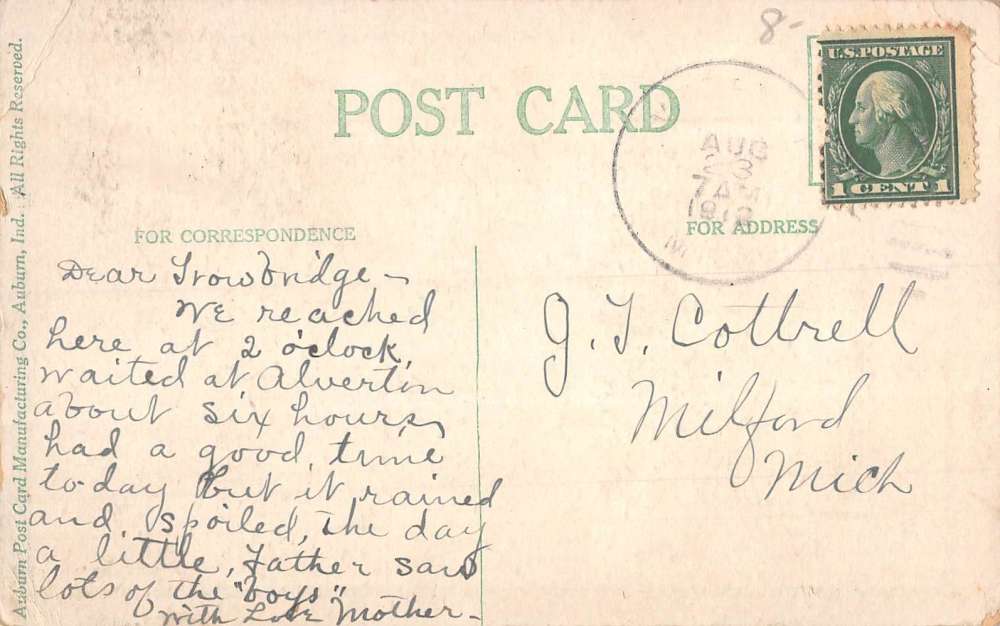 8-
U.S. POSTAGE
1 CENT 1
POST CARD
AUG
23
7 AM
M
FOR CORRESPONDENCE
FOR ADDRESS
Dear Trowbridge -
We reached
here at 2 o'clock,
waited at Alverton
about six hours,
had a good, time
to-day but it rained
and, spoiled, the day
a little, Father saw
lots of the "boys"
With Love Mother -
J. T. Cottrell
Milford
Mich
Auburn Post Card Manufacturing Co., Auburn, Ind. All Rights Reserved.